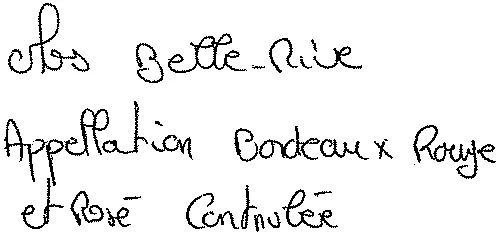 clos Belle-Rive
Appellation Bordeaux Rouge
et Rosé Contrôlée